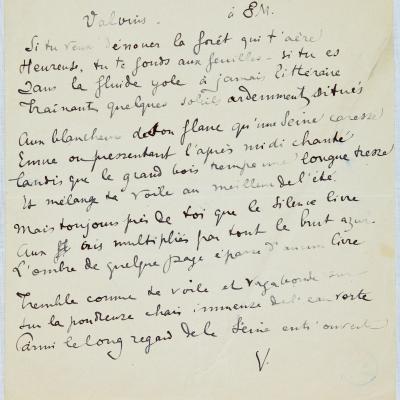 Valvins.
à S.M.
Si tu veux dénouer la forêt qui t'aère
Heureuse, tu te fonds aux feuilles - si tu es
Dans la fluide yole à jamais littéraire
Traînant quelques soleils ardemment situés
Aux blancheurs de ton flanc qu'une Seine caresse
Emue ou pressentant l'après midi chanté
tandis que le grand bois trempe une longue tresse
Et mélange ta voile au meilleur de l'été
Mais toujours près de toi que le Silence livre
Aux cris multipliés par tout le brut azur
L'ombre de quelque page éparse d'aucun livre
Tremble comme ta voile et vagabonde sur
Sur la poudreuse chair immense de l'eau verte
Parmi le long regard de la Seine entr'ouverte
V.